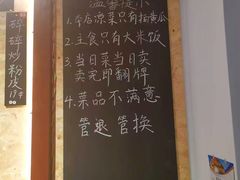 温馨提示
1.今后凉菜只有拍黄瓜
2.主食只有大米饭
3.当日菜当日卖
卖完即翻牌
4.菜品不满意
管退管换
碎碎炒粉皮
19元